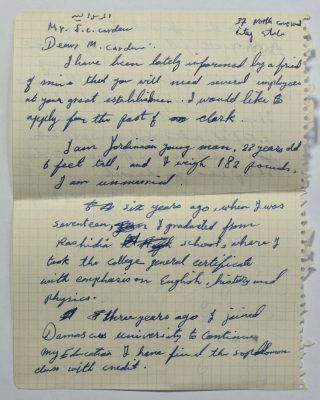 Mr. J. C. Carden
37 North
Dear M. Carden:
I have been lately informed by a fried
of mine that you will need several employees
at your great establishmen. I would like to
apply for the post of clark.
I am Jordinian young man, 22 years old
6 feet tall, and I weigh 182 pounds.
I am unmarried.
six years ago, when I was
seventeen, I graduated from
Rashidia school, where I
took the college general certificate
with emphasis on English, history and
physics.
three years ago I joined
Damascus univeristy to continue
my Education I have finsd the
class with credit.